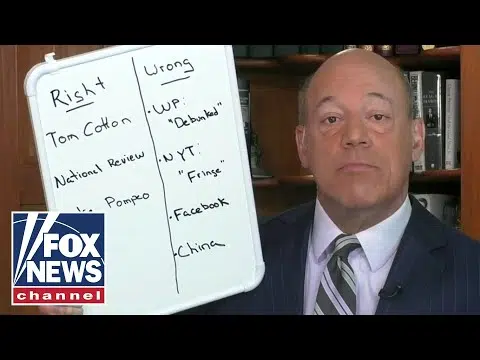 Right
Tom Cotton
National Review
Pompeo
Wrong
• WP:
"Debunked"
• NYT:
"Fringe"
• Facebook
• China
FOX
NEWS
channel